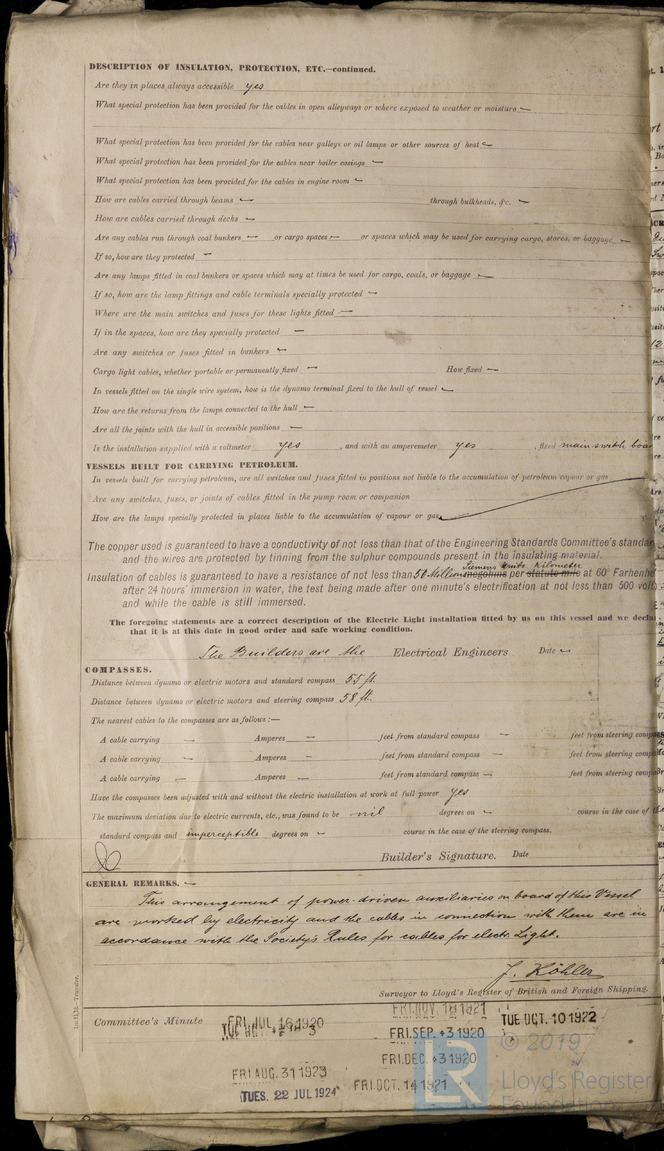 DESCRIPTION OF INSULATION, PROTECTION, ETC.—continued.
Are they in places always accessible yes
What special protection has been provided for the cables in open alleyways or where exposed to weather or moisture —
What special protection has been provided for the cables near galleys or oil lamps or other sources of heat —
What special protection has been provided for the cables near boiler casings —
What special protection has been provided for the cables in engine room —
How are cables carried through beams — through bulkheads, &c. —
How are cables carried through decks —
Are any cables run through coal bunkers — or cargo spaces — or spaces which may be used for carrying cargo, stores, or baggage —
If so, how are they protected —
Are any lamps fitted in coal bunkers or spaces which may at times be used for cargo, coals, or baggage —
If so, how are the lamp fittings and cable terminals specially protected —
Where are the main switches and fuses for these lights fitted —
If in the spaces, how are they specially protected —
Are any switches or fuses fitted in bunkers —
Cargo light cables, whether portable or permanently fixed — How fixed —
In vessels fitted on the single wire system, how is the dynamo terminal fixed to the hull of vessel —
How are the returns from the lamps connected to the hull —
Are all the joints with the hull in accessible positions —
Is the installation supplied with a voltmeter yes , and with an amperemeter yes , fixed main switch boa
VESSELS BUILT FOR CARRYING PETROLEUM.
In vessels built for carrying petroleum, are all switches and fuses fitted in positions not liable to the accumulation of petroleum vapour or gas
Are any switches, fuses, or joints of cables fitted in the pump room or companion
How are the lamps specially protected in places liable to the accumulation of vapour or gas
The copper used is guaranteed to have a conductivity of not less than that of the Engineering Standards Committee's standar
and the wires are protected by tinning from the sulphur compounds present in the insulating material.
Siemens Units Kilometer
Insulation of cables is guaranteed to have a resistance of not less than 50 Million megohms per statute mile at 60° Farhenh
after 24 hours' immersion in water, the test being made after one minute's electrification at not less than 500 volt
and while the cable is still immersed.
The foregoing statements are a correct description of the Electric Light installation fitted by us on this vessel and we decla
that it is at this date in good order and safe working condition.
The Builders are the Electrical Engineers Date —
COMPASSES.
Distance between dynamo or electric motors and standard compass 55 ft.
Distance between dynamo or electric motors and steering compass 58 ft.
The nearest cables to the compasses are as follows:—
A cable carrying — Amperes — feet from standard compass — feet from steering comp
A cable carrying — Amperes — feet from standard compass — feet from steering comp
A cable carrying — Amperes — feet from standard compass — feet from steering comp
Have the compasses been adjusted with and without the electric installation at work at full power yes
The maximum deviation due to electric currents, etc., was found to be nil degrees on — course in the case of the
standard compass and imperceptible degrees on — course in the case of the steering compass.
Builder's Signature. Date
GENERAL REMARKS. —
This arrangement of power-driven auxiliaries on board of this Vessel
are worked by electricity and the cables in connection with them are in
accordance with the Society's Rules for cables for electr. Light.
J. Köhler
Surveyor to Lloyd's Register of British and Foreign Shipping.
Committee's Minute
FRI. JUL 16 1920
FRI. NOV. 18 1921
FRI. SEP. 3 1920
TUE OCT. 10 1922
FRI. DEC. 3 1920
FRI AUG. 31 1923
FRI. OCT. 14 1921
TUES. 22 JUL 1924
© 2019
LR
Lloyd's Register
Foundation